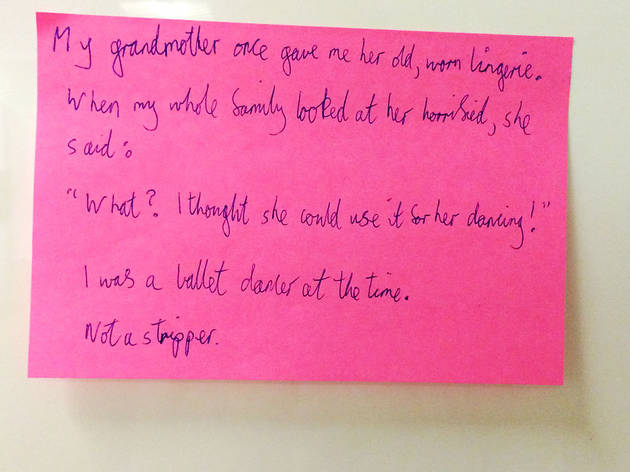 My grandmother once gave me her old, worn lingerie.
When my whole family looked at her horrified, she
said:
"What? I thought she could use it for her dancing!"
I was a ballet dancer at the time.
Not a stripper.